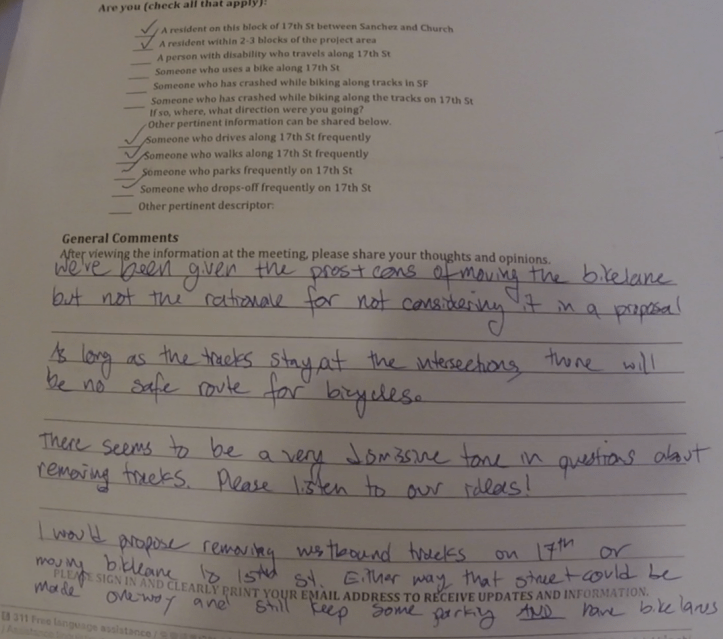 Are you (check all that apply):
A resident on this block of 17th St between Sanches and Church
A resident within 2-3 blocks of the project area
A person with disability who travels along 17th St
Someone who uses a bike along 17th St
Someone who has crashed while biking along tracks in SF
Someone who has crashed while biking along the tracks on 17th St
If so, where, what direction were you going?
Other pertinent information can be shared below.
Someone who drives along 17th St frequently
Someone who walks along 17th St frequently
Someone who parks frequently on 17th St
Someone who drops-off frequently on 17th St
Other pertinent descriptor:
General Comments
After viewing the information at the meeting, please share your thoughts and opinions.
We've been given the pros + cons of moving the bikelane
but not the rationale for not considering it in a proposal
As long as the tracks stay at the intersections, there will
be no safe route for bicycles.
There seems to be a very dismissive tone in questions about
removing tracks. Please listen to our ideas!
I would propose removing westbound tracks on 17th or
moving bikelane to St. Either way that street could be
PLEASE SIGN IN AND CLEARLY PRINT YOUR EMAIL ADDRESS TO RECEIVE UPDATES AND INFORMATION.
made oneway and still keep some parking AND have bike lanes
311 Free language assistance /